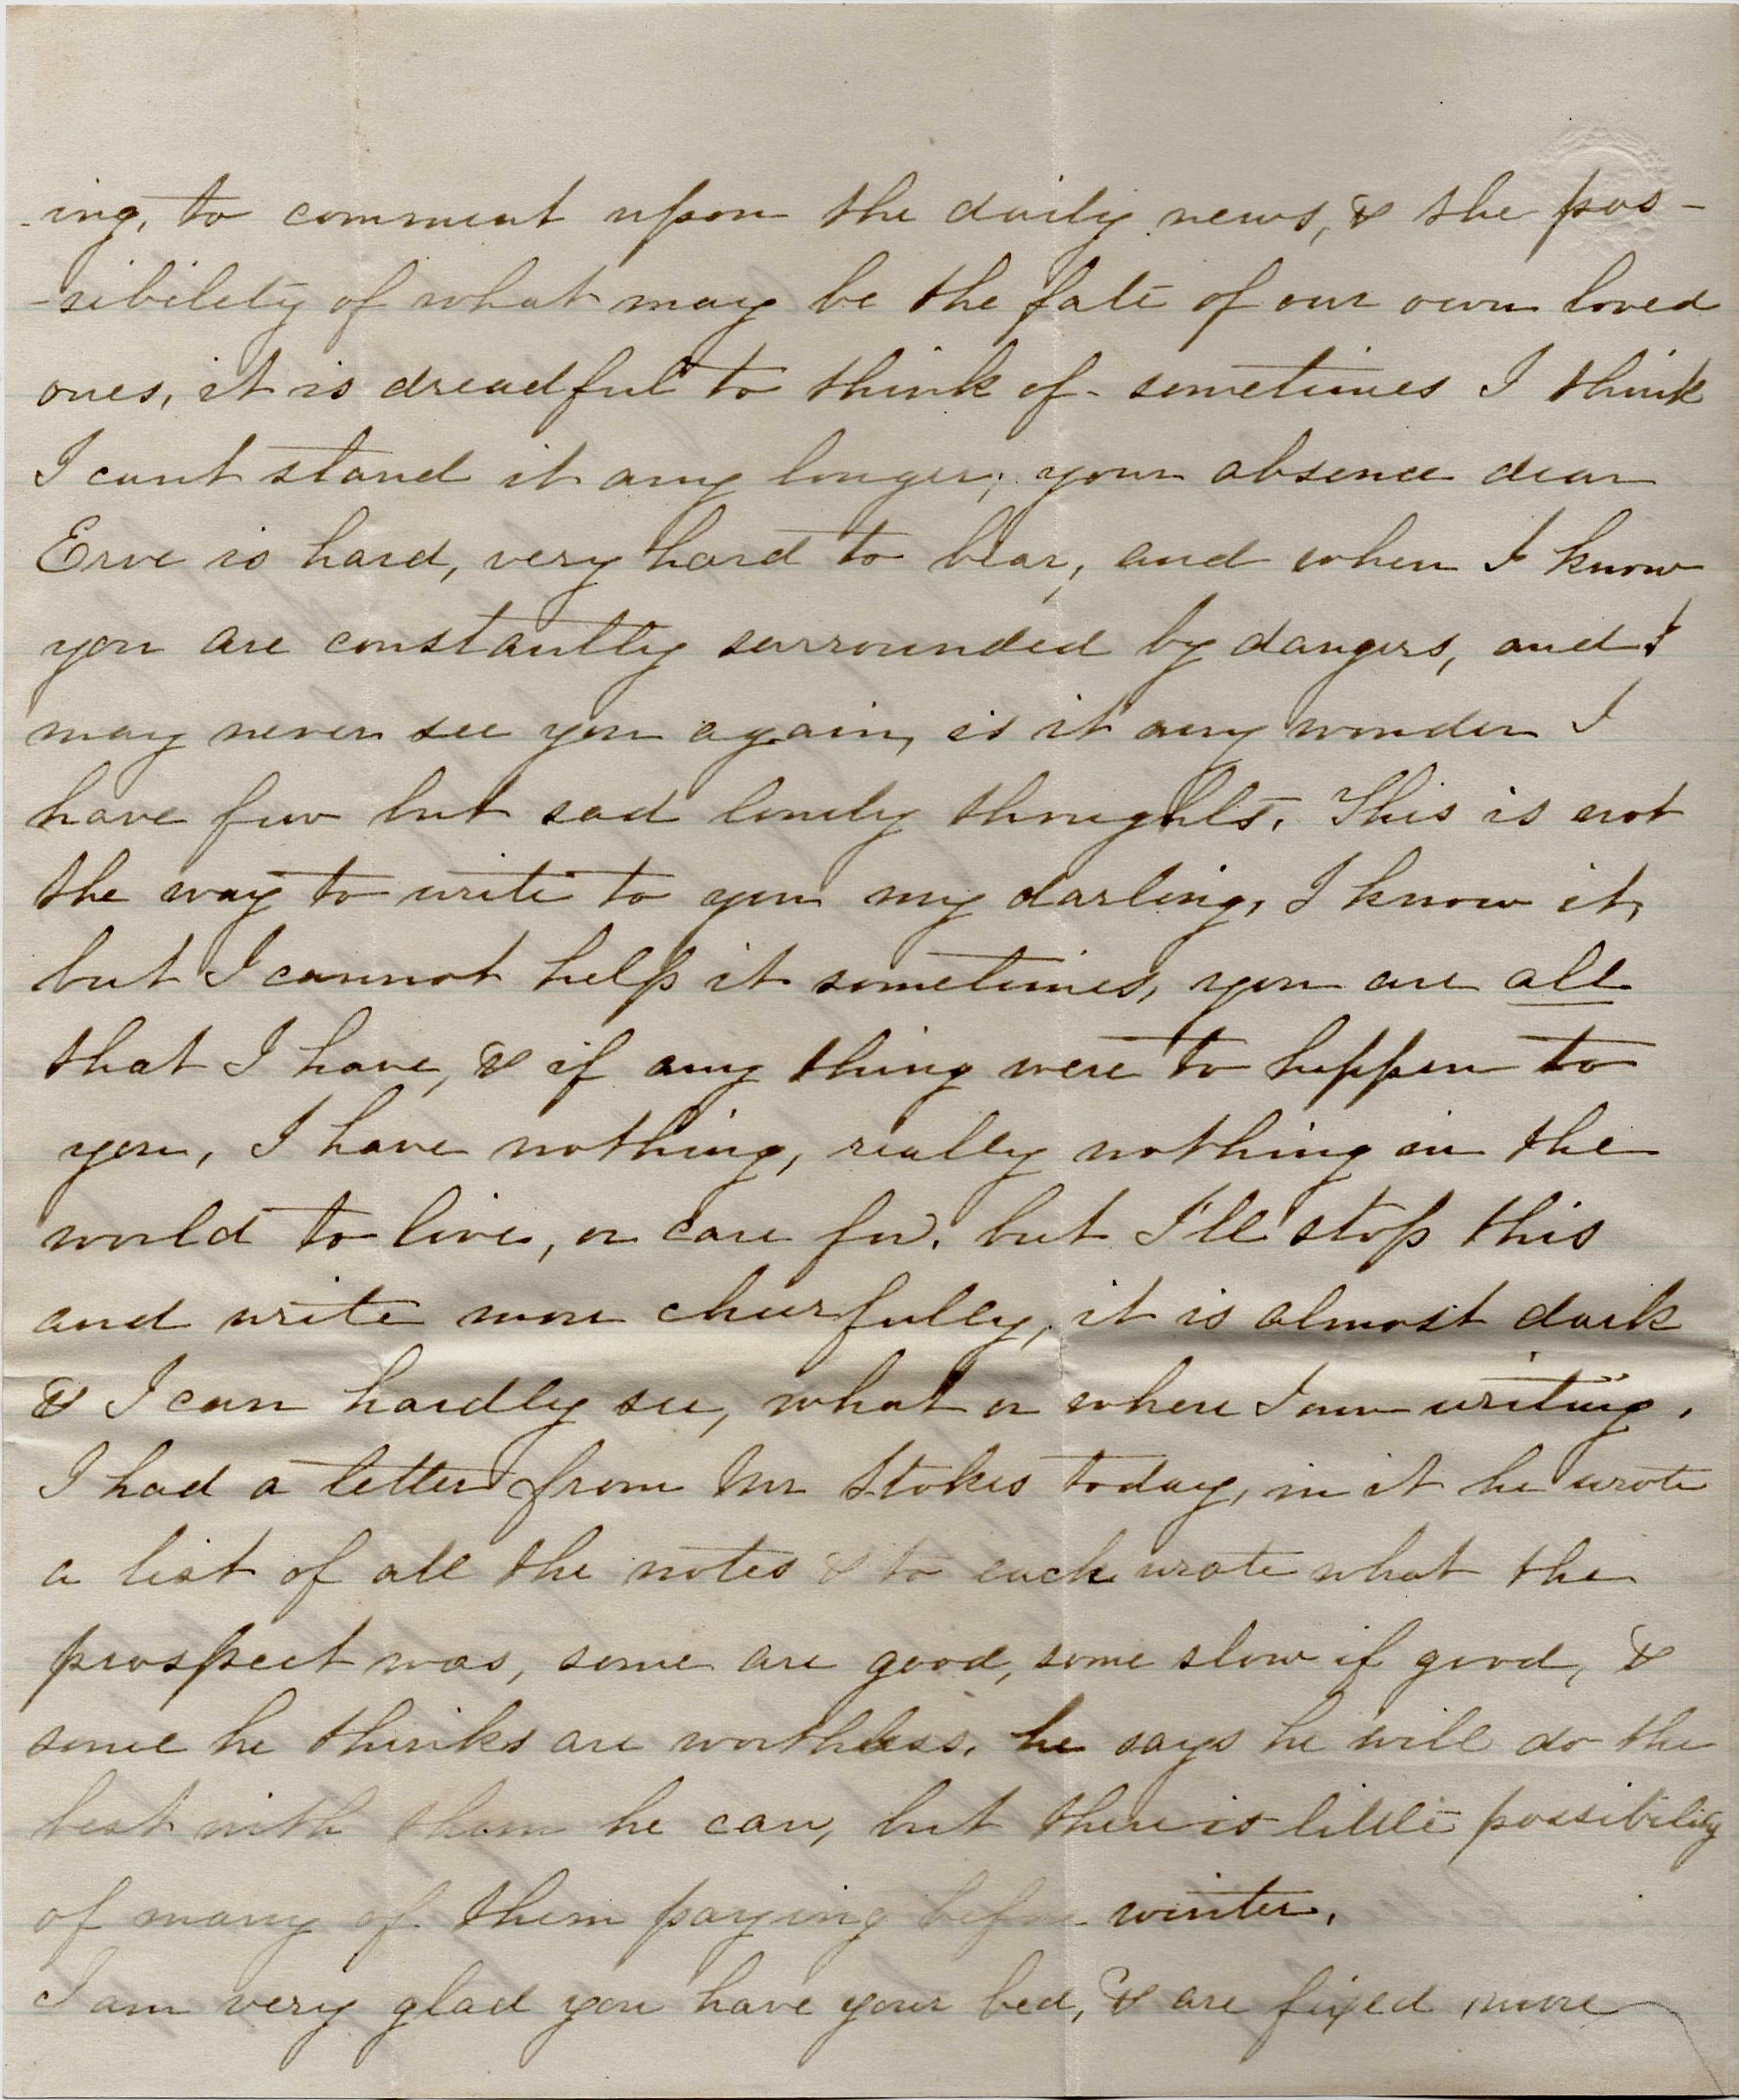 -ing, to comment upon the daily news, & the pos-
-sibility of what may be the fate of our own loved
ones, it is dreadful to think of - sometimes I think
I cant stand it any longer; your absence dear
Erve is hard, very hard to bear, and when I know
you are constantly surrounded by dangers, and I
may never see you again, is it any wonder I
have few but sad lonely thoughts. This is not
the way to write to you my darling, I know it,
but I cannot help it sometimes, you are all
that I have, & if any thing were to happen to
you, I have nothing, really nothing in the
world to live, or care for. but I'll stop this
and write more cheerfully, it is almost dark
& I can hardly see, what or where I am writing.
I had a letter from Mr Stokes today, in it he wrote
a list of all the notes & to each wrote what the
prospect was, some are good, some slow if good, &
some he thinks are worthless. he says he will do the
best with them he can, but there is little possibility
of many of them paying before winter.
I am very glad you have your bed, & are fixed more